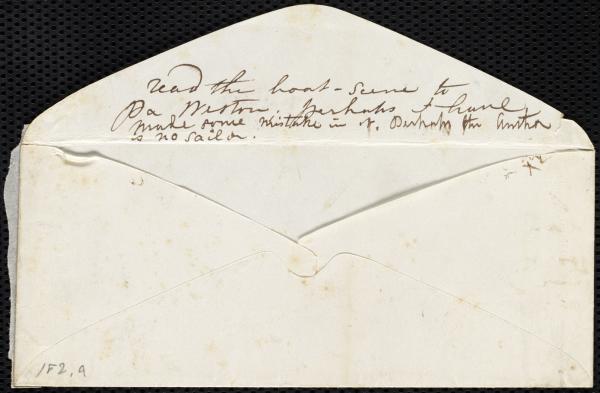 read the boat-scene to
Pa Weston. Perhaps I have
made some mistake in it. Perhaps the Author
is no sailor.
1F2,9